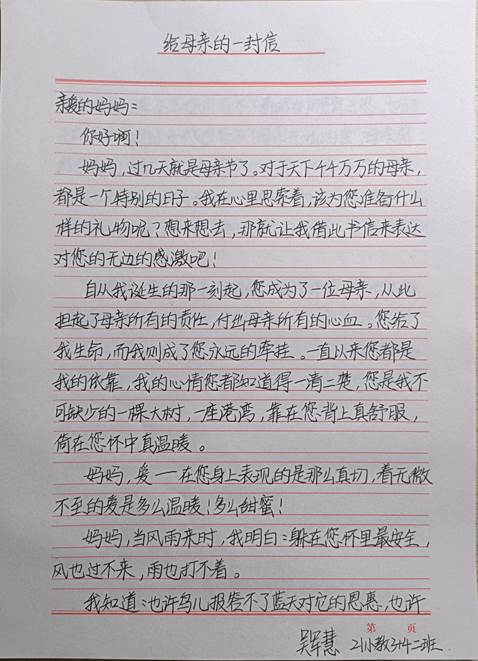 给母亲的一封信
亲爱的妈妈：
你好啊！
妈妈，过几天就是母亲节了。对于天下千千万万的母亲，
都是一个特别的日子。我在心里思索着，该为您准备什么
样的礼物呢？想来想去，那就让我借此书信来表达
对您的无边的感激吧！
自从我诞生的那一刻起，您成为了一位母亲，从此
担起了母亲所有的责任，付出母亲所有的心血。您给了
我生命，而我则成了您永远的牵挂。一直以来您都是
我的依靠，我的心情您都知道得一清二楚，您是我不
可缺少的一棵大树，一座港湾，靠在您背上真舒服，
倚在您怀中真温暖。
妈妈，爱一在您身上表现的是那么真切，看无微
不至的爱是多么温暖！多么甜蜜！
妈妈，当风雨来时，我明白：躲在您怀里最安全，
风也过不来，雨也打不着。
我知道：也许鸟儿报答不了蓝天对它的恩惠，也许
第 页
吴军慧 21小教3+4二班